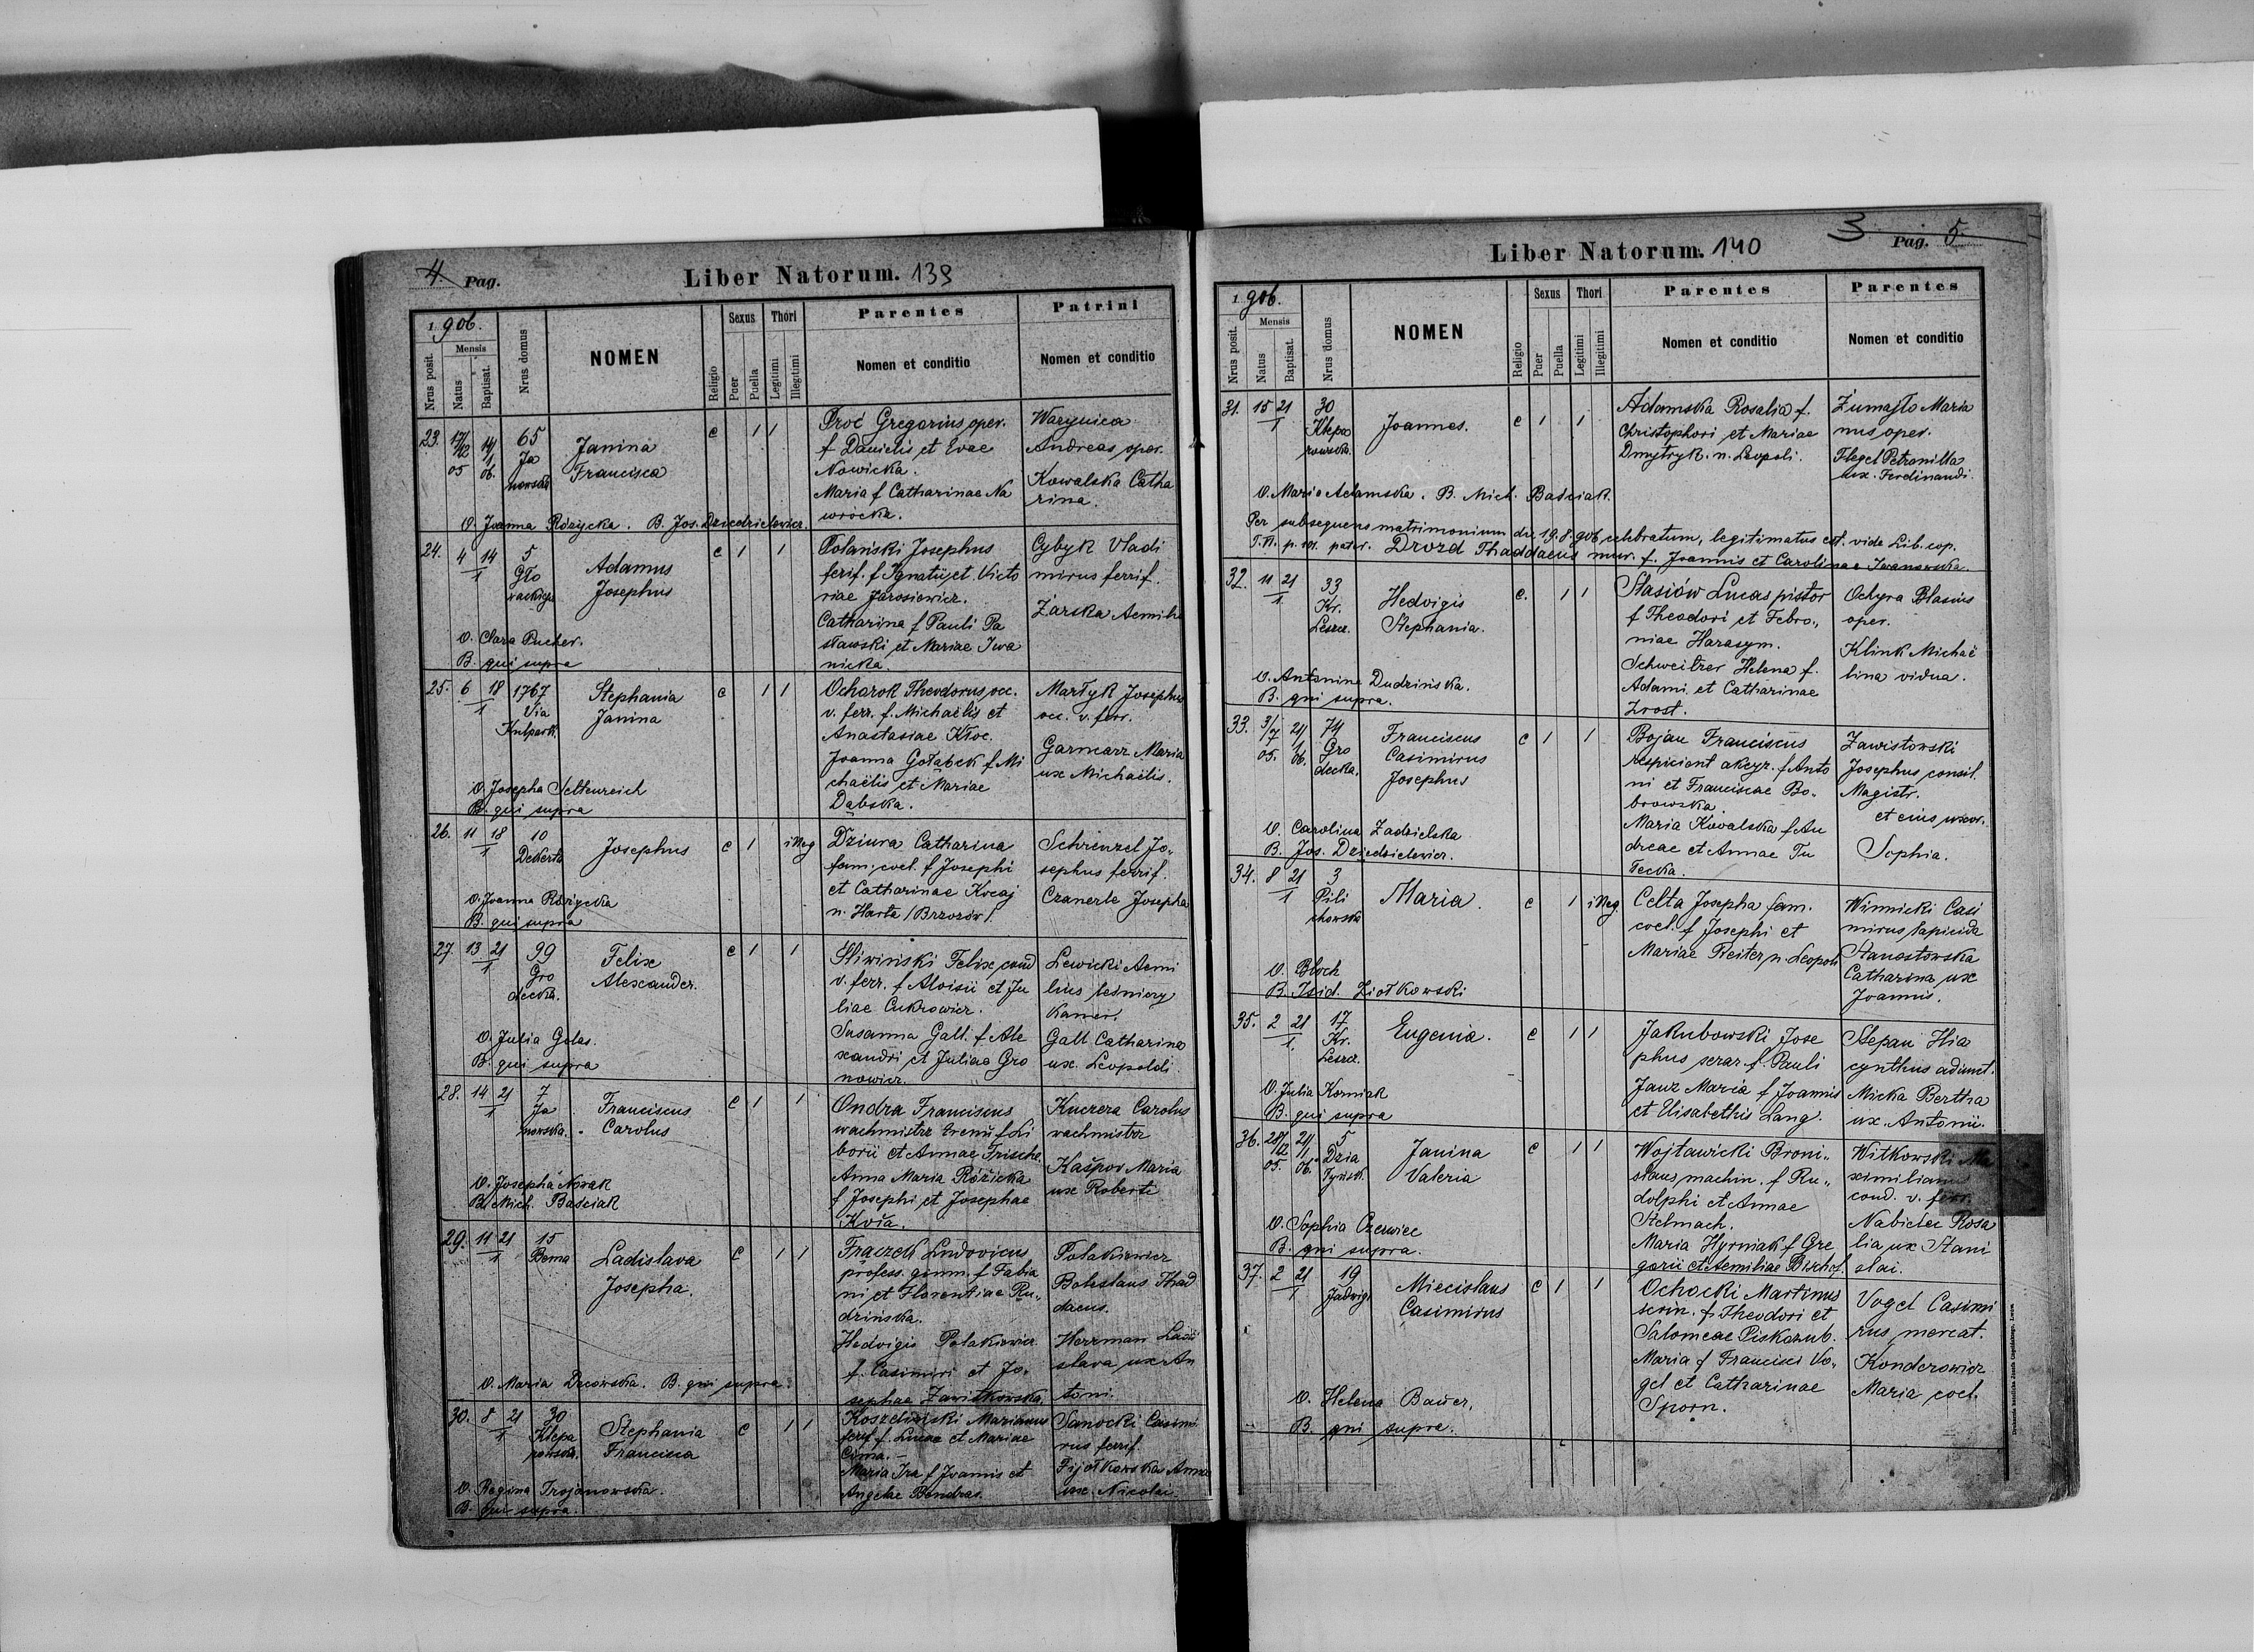 4. Pag.
Liber Natorum. 139
1906.
Nrus posit.
Mensis
Natus
Baptisat.
Nrus domus
NOMEN
Religio
Sexus
Puer
Puella
Thori
Legitimi
Illegitimi
Parentes
Nomen et conditio
Patrini
Nomen et conditio
23. 17/12 05 14/1 06. 65 Janowska
Janina
Francisca
c 1 1
Proć Gregorius, oper.
f. Danielis et Evae
Nowicka.
Maria f Catharinae Na
wrocka.
Warynica
Andreas oper.
Kowalska Catha
rina.
O. Joanna Różycka. B. Jos. Dziedzielewicz.
24. 4 14/1 5
Adamus
Josephus
c 1 1
Polański Josephus
ferif. f Ignatii et Victo
riae Jarosiewicz.
Catharina f Pauli Pa
sławski et Mariae Iwa
nicka.
Cybyk Vladi
mirus ferrif.
Żarska Aemilia
O. Clara Pucher.
B. qui supra
25. 6 18/1 1767
Via
Kulpark.
Stephania
Janina
c 1 1
Ocharok Theodorus, occ.
v. ferr. f. Michaëlis et
Anastasiae Kłoc.
Joanna Gołąbek f Mi
chaëlis et Mariae
Dąbska.
Martyk Josephus
occ. v. ferr.
Garmarz Maria
ux Michaëlis.
O. Josepha Seltenreich
B. qui supra
26. 11 18/1 10
Dekerta
Josephus
c 1 illeg
Dziura Catharina
fam. coel. f Josephi
et Catharinae Kocaj
n. Harta /Brzozów/.
Schrenzel Jo„
sephus ferrif.
Czanerle Josepha
O. Joanna Różycka
B. qui supra
27. 13 21/1 99
Gro
decka.
Felix
Alexander.
c 1 1
Śliwiński Felix, cond
v. ferr. f Aloisii et Ju
liae Cukrowicz.
Susanna Gall. f Ale
xandri et Juliae Gro
nowicz.
Lewicki Aemi
lius leśniczy
kamer.
Gall Catharina
ux. Leopoldi.
O. Julia Golas.
B. qui supra
28. 14 21/1 7
Ja
nowska.
Franciscus
Carolus
c 1 1
Ondra Franciscus
wachmistrz trenu f Li
borii et Annae Frische.
Anna Maria Růžicka
f Josephi et Josephae
Kuczera Carolus
wachmistrz
Kašpor Maria
ux Roberti
O. Josepha Novak
B. Mich. Baściak
29. 11 21/1 15
Bema
Ladislava
Josepha.
c 1 1
Frączek Ludovicus
profess. gimn. f Fabia
ni et Florentiae Ru„
dzińska.
Hedvigis Polakiewicz
f. Casimiri et Jo„
sephae Zawitkowska.
Polakiewicz
Boleslaus Thad
daeus.
Herrman Ladi
slava ux An
toni.
O. Maria Dzcowska. B. qui supra.
30. 8 21/1 30
Klepa
rowska.
Stephania
Francisca
c 1 1
Koszeliński Marianus
ferif f. Lucae et Mariae
Cima.
Maria Ira f Joannis et
Angelae Bendras.
Sanocki Casimi
rus ferrif.
Fijołkowska Anna
ux. Nicolai.
O. Regina Trojanowska.
B. qui supra.
3 Pag. 5.
Liber Natorum. 140
1906.
Nrus posit.
Mensis
Natus
Baptisat.
Nrus domus
NOMEN
Religio
Sexus
Puer
Puella
Thori
Legitimi
Illegitimi
Parentes
Nomen et conditio
Parentes
Nomen et conditio
31. 15 21/1 30
Klepa
rowska.
Joannes.
c 1 1
Adamska Rosalia f.
Christophori et Mariae
Dmytryk. n. Leopoli.
Żumajło Maria
nus oper.
Flegel Petronilla
ux. Ferdinandi.
O. Maria Adamska. B. Mich. Baściak.
Per subsequens matrimonium die 19.8.906 celebratum, legitimatus est. vide Lib. cop.
T. VI. p. pater. Drozd Thaddaeus mur. f. Joannis et Carolinae Iwanowska.
32. 11 21/1 33
Kr.
Leszcz.
Hedvigis
Stephania.
c. 1 1
Stasiów Lucas pistor
f Theodori et Febro„
niae Harasym.
Schweitzer Helena f.
Adami et Catharinae
Zrost.
Ochyra Blasius
oper.
Klink Michaë
lina vidua.
O. Antonina Dudzińska.
B. qui supra.
33. 3/7 05. 21/1 06. 74
Gro
decka.
Franciscus
Casimirus
Josephus
c 1 1
Bojan Franciscus
respicient akcyz. f Anto
ni et Franciscae Bo„
browska.
Maria Kowalska f An
dreae et Annae Tu
recka.
Zawistowski
Josephus consil.
Magistr.
et eius uxor.
Sophia.
O. Carolina Zadzielska
B. Jos. Dziedzielewicz.
34. 8 21/1 3
Pili
chowska
Maria.
c 1 illeg.
Celta Josepha fam.
coel. f Josephi et
Mariae Reiter n. Leopoli
Winnicki Casi
mirus, lapicida
Stanostowska
Catharina ux
Joannis.
O. Bloch
B. Isid. Ziołkowski
35. 2 21/1 17
Kr.
Leszcz.
Eugenia.
c 1 1
Jakubowski Jose
phus serar f. Pauli
Janz Maria f Joannis
et Elisabethis Lang.
Stepan Hia
cynthus adiunct.
Micka Bertha
ux. Antonii.
O. Julia Korniak
B. qui supra
36. 28/12 05. 21/1 06. 5
Dzia
łyńsk.
Janina
Valeria
c 1 1
Wojtawicki Broni„
slaus, machin. f Ru„
dolphi et Annae
Stelmach.
Maria Hyrniak f Gre
gorii et Aemiliae Bischof.
Witkowski Ma
ximilianus
cond. v. ferr.
Nabielec Rosa
lia ux Stani
slai.
O. Sophia Czewiec
B. qui supra.
37. 2 21/1 19
Jadwigi
Miecislaus
Casimirus
c 1 1
Ochocki Martinus
scrin. f. Theodori et
Salomeae Piskozub.
Maria f Francisci Vo„
gel et Catharinae
Sporn.
Vogel Casimi
rus, mercat.
Konderowicz
Maria coel.
O. Helena Bauer,
B. qui supra.